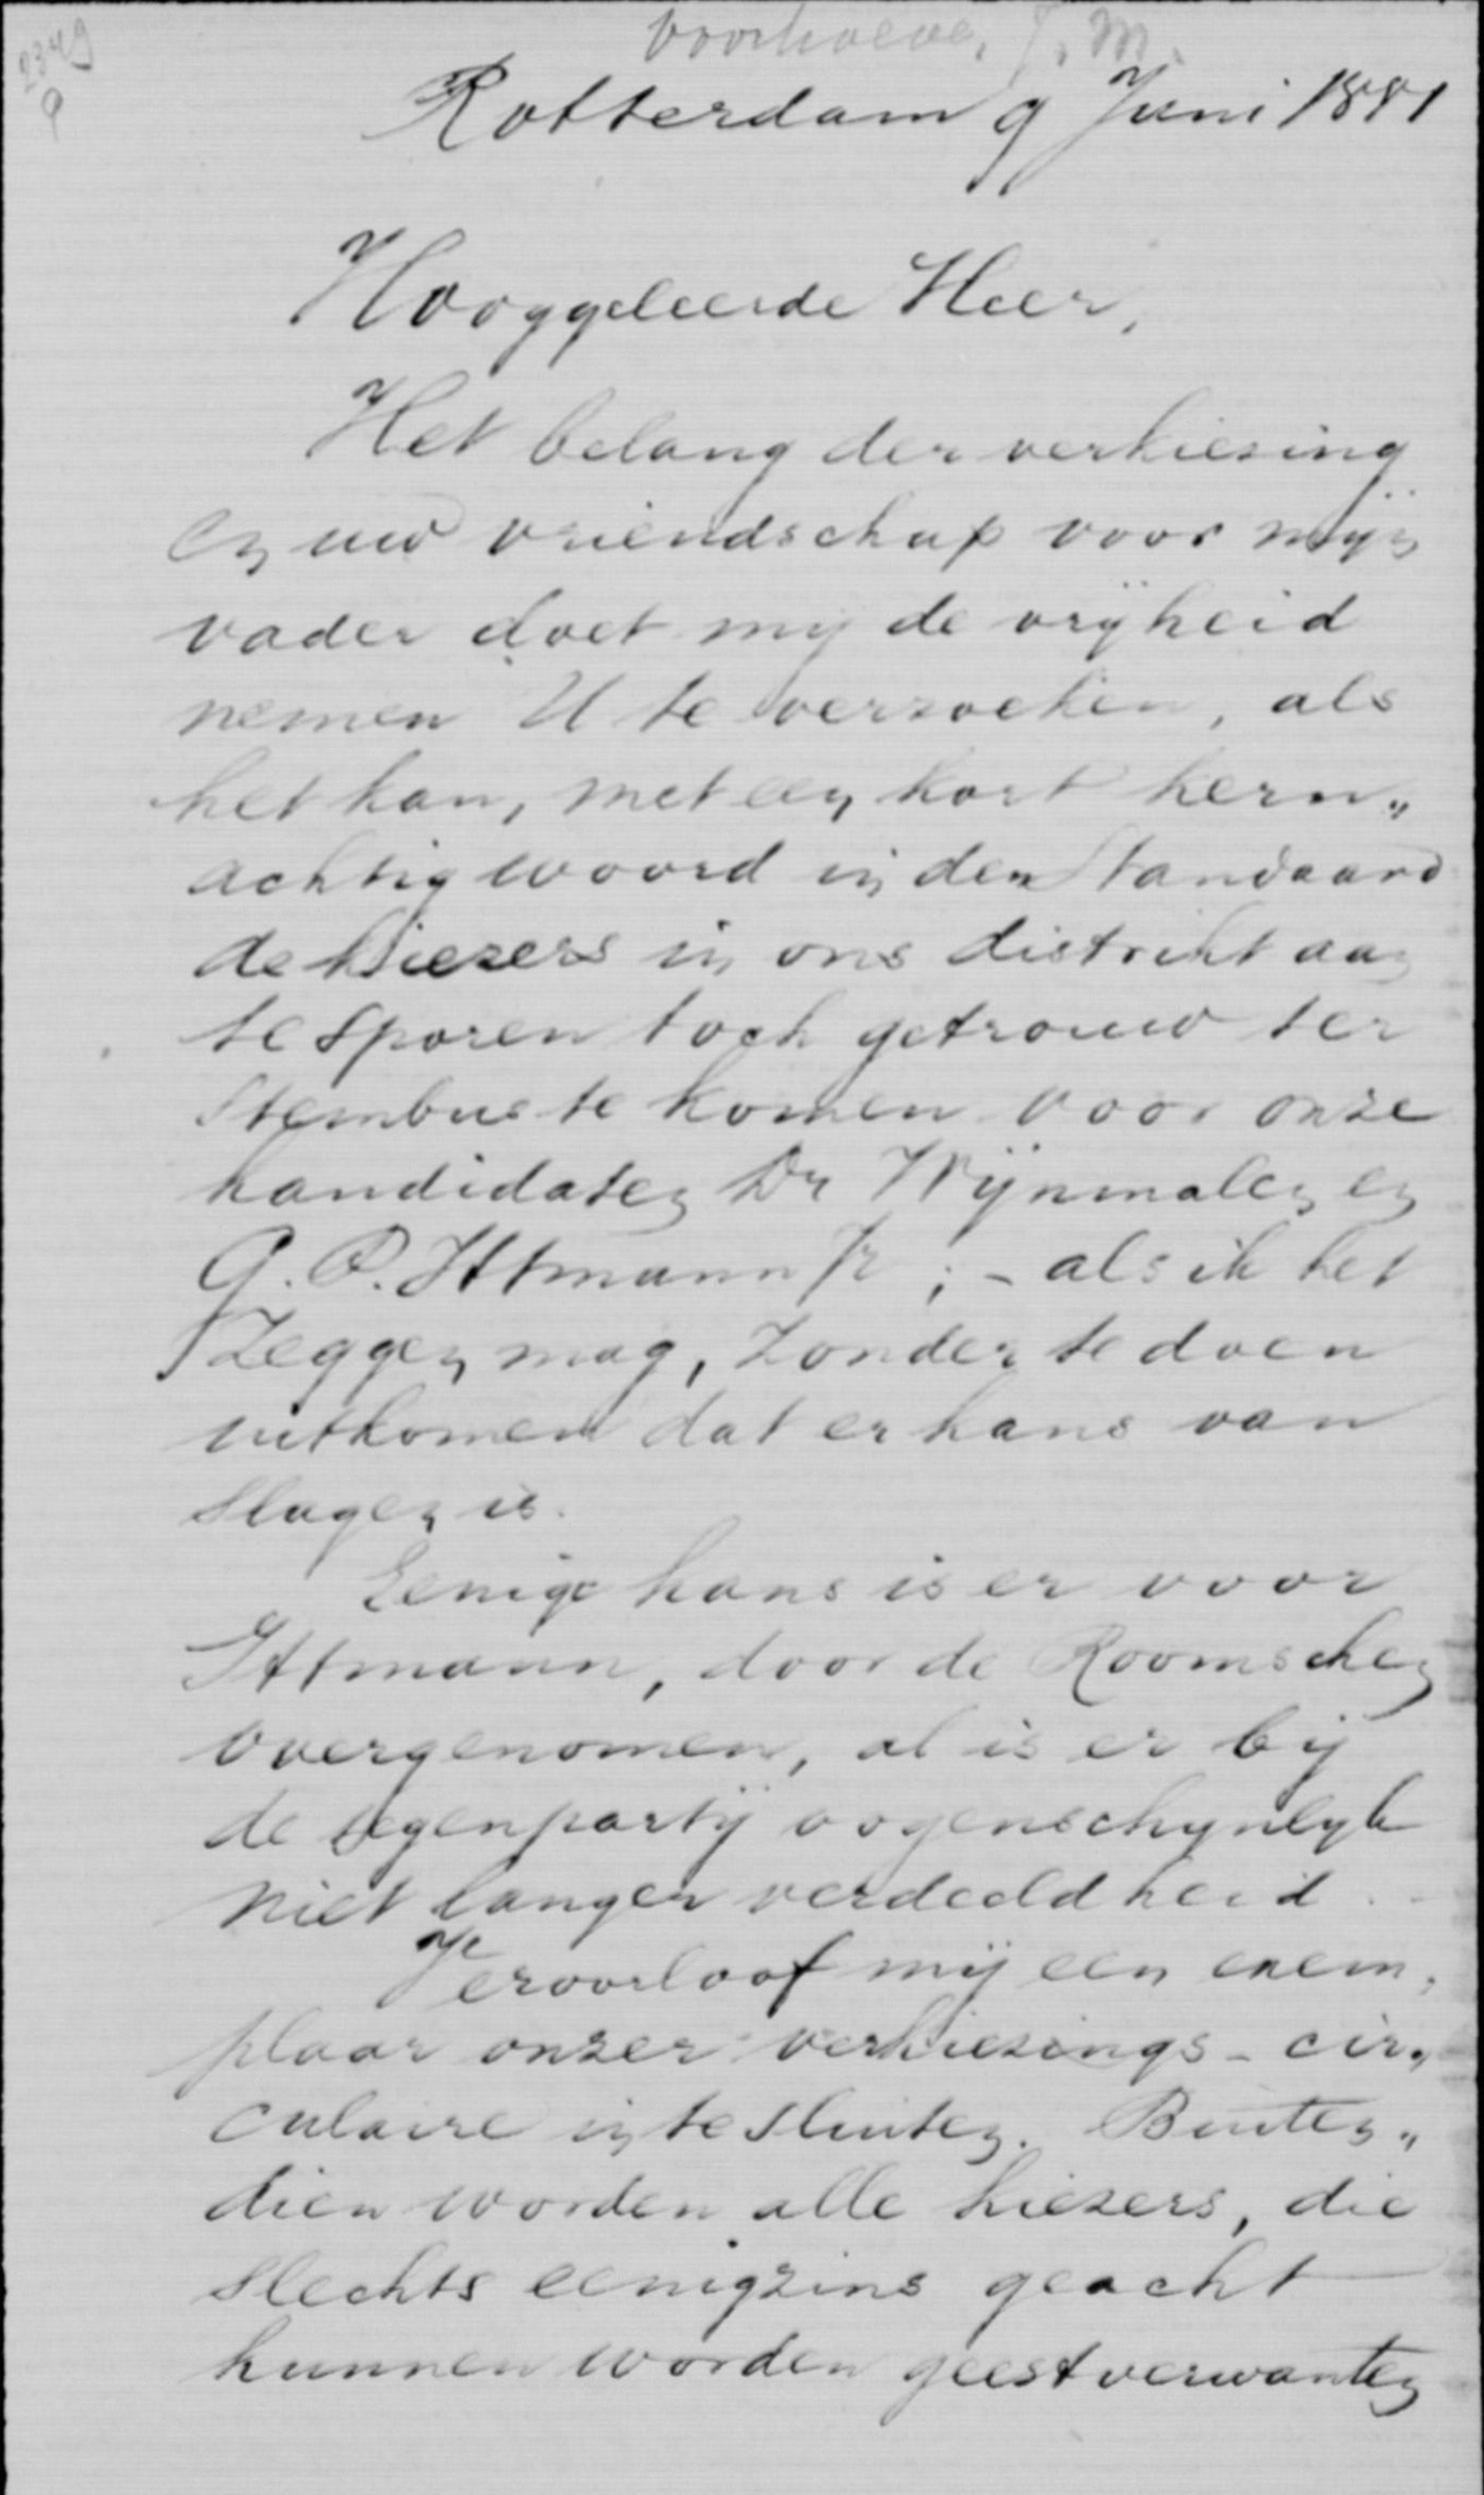 2349
9
Voorhoeve, J. M.
Rotterdam 9 Juni 1881
Hooggeleerde Heer,
Het belang der verkiezing
en uw vriendschap voor mijn
vader doet my de vryheid
nemen U te verzoeken, als
het kan, met een kort kern„
achtig woord in den Standaard
de kiezers in ons distrikt aan
te sporen toch getrouw ter
Stembus te komen voor onze
kandidaten Dr Wijnmalen en
A. P. Ittmann Jr ; - als ik het
zeggen mag, zonder te doen
uitkomen dat er kans van
slagen is.
Eenige kans is er voor
Ittmann, door de Roomschen
overgenomen, al is er bij
de tegenpartij oogenschynlyk
niet langer verdeeldheid.
Veroorloof mij een exem„
plaar onzer verkiezings- cir„
culaire in te sluiten. Buiten„
dien worden alle kiezers, die
slechts eenigzins geacht
kunnen worden geestverwanten